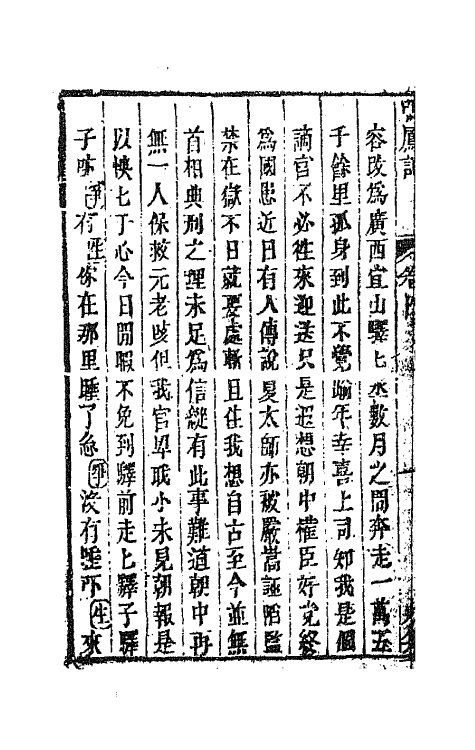 鳳記
卷四
容改爲廣西宜山驛七丞數月之間奔走一萬五
千餘里孤身到此不覺踰年幸喜上司知我是個
謫官不必徃來迎送只是遥想朝中權臣好党終
爲國患近日有人傳說夏太師亦被嚴嵩誣陷監
禁在獄不日就要處斬且住我想自古至今並無
首相典刑之理未足爲信縱有此事難道朝中再
無一人保救元老咳但我官卑職小未見朝報是
以怏七于心今日閒暇不免到驛前走上驛子驛
子 净有生你在那里睡了 净没有睡 生來